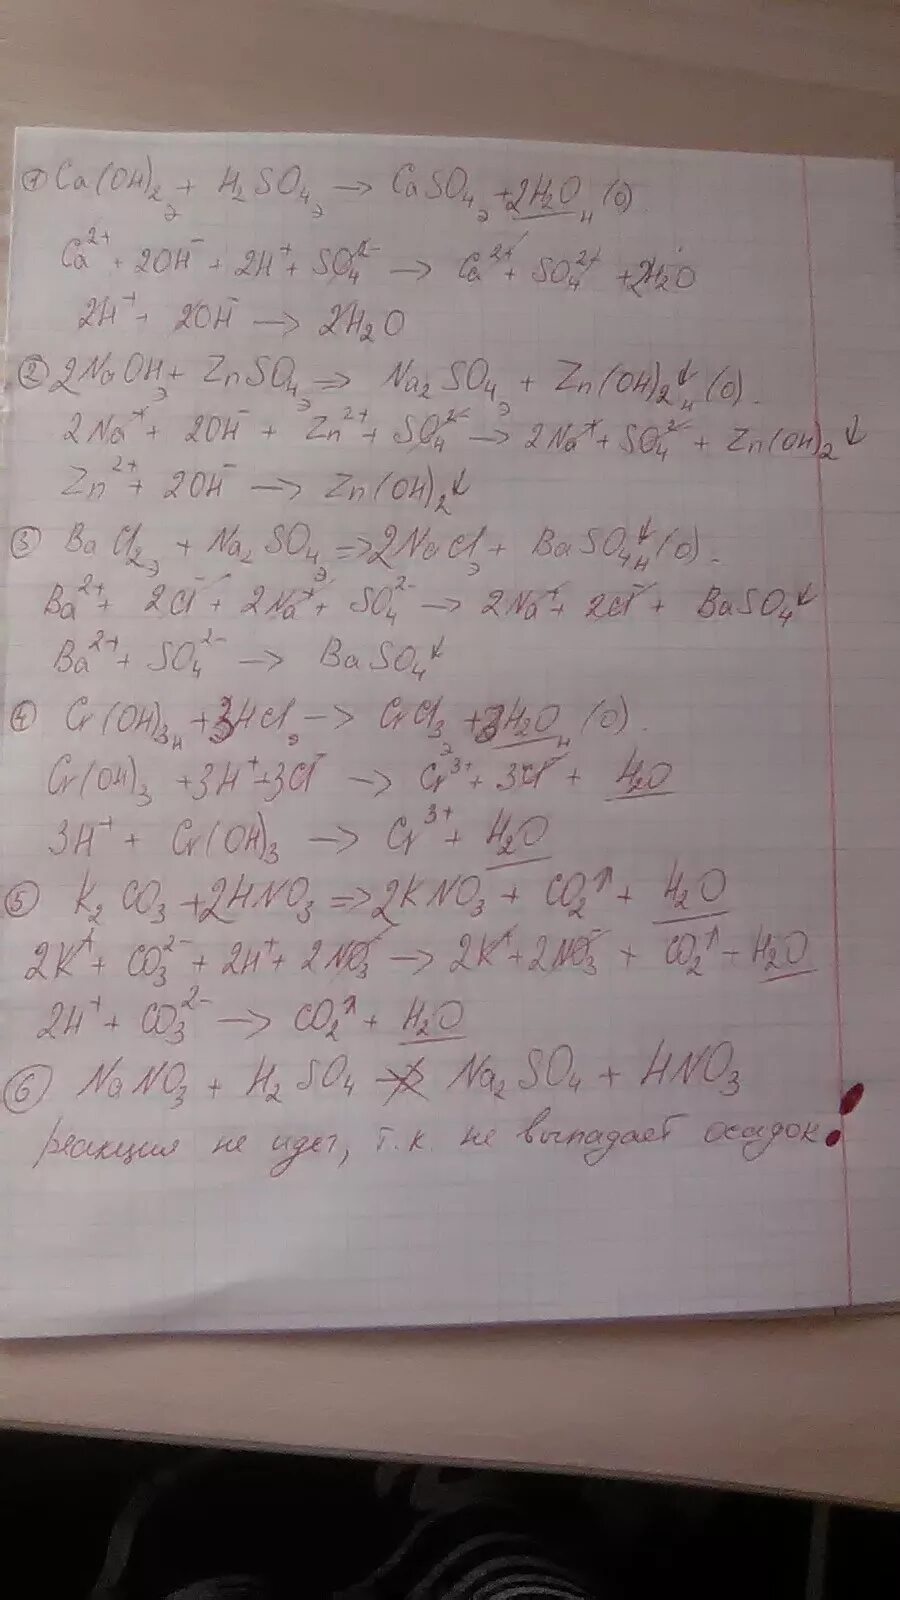 ① Ca(OH)₂э + H₂SO₄э → CaSO₄э + 2H₂Oн (о)
Ca²⁺ + 2OH⁻ + 2H⁺ + SO₄²⁻ → Ca²⁺ + SO₄²⁺ + 2H₂O
2H⁺ + 2OH⁻ → 2H₂O
② 2NaOHэ + ZnSO₄э => Na₂SO₄э + Zn(OH)₂↓н (о).
2Na⁺ + 2OH⁻ + Zn²⁺ + SO₄²⁻ → 2Na⁺ + SO₄²⁻ + Zn(OH)₂↓
Zn²⁺ + 2OH⁻ → Zn(OH)₂↓
③ BaCl₂э + Na₂SO₄э => 2NaClэ + BaSO₄↓н (о).
Ba²⁺ + 2Cl⁻ + 2Na⁺ + SO₄²⁻ → 2Na⁺ + 2Cl⁻ + BaSO₄↓
Ba²⁺ + SO₄²⁻ → BaSO₄↓
④ Cr(OH)₃н + 3HClэ → CrCl₃э + 3H₂Oн (о).
Cr(OH)₃ + 3H⁺ + 3Cl⁻ → Cr³⁺ + 3Cl⁻ + H₂O
3H⁺ + Cr(OH)₃ → Cr³⁺ + H₂O
⑤ K₂CO₃ + 2HNO₃ => 2KNO₃ + CO₂↑ + H₂O
2K⁺ + CO₃²⁻ + 2H⁺ + 2NO₃⁻ → 2K⁺ + 2NO₃⁻ + CO₂↑ + H₂O
2H⁺ + CO₃²⁻ → CO₂↑ + H₂O
⑥ NaNO₃ + H₂SO₄ ↛ Na₂SO₄ + HNO₃
реакция не идет, т.к. не выпадает осадок!